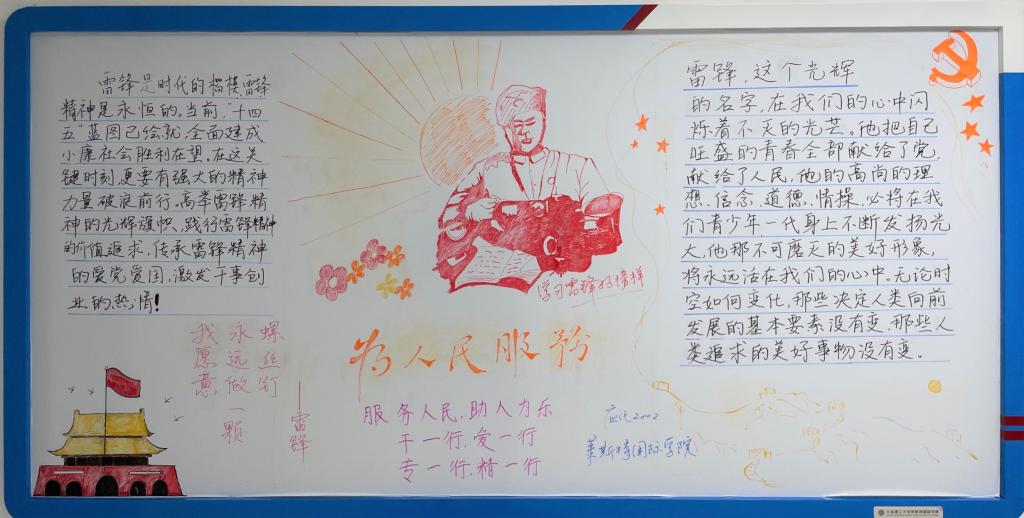 雷锋是时代的楷模,雷锋
精神是永恒的。当前,"十四
五"蓝图已绘就,全面建成
小康社会胜利在望。在这关
键时刻,更要有强大的精神
力量破浪前行。高举雷锋精
神的光辉旗帜,践行雷锋精神
的价值追求,传承雷锋精神
的爱党爱国,激发干事创
业的热情!
我愿意
永远做一颗
螺丝钉
——雷锋
学习雷锋好榜样
为人民服务
服务人民,助人为乐
干一行,爱一行
专一行,精一行
应化2002
莱斯特国际学院
雷锋,这个光辉
的名字,在我们的心中闪
烁着不灭的光芒。他把自己
旺盛的青春全部献给了党,
献给了人民,他的高尚的理
想、信念、道德、情操,必将在我
们青少年一代身上不断发扬光
大,他那不可磨灭的美好形象,
将永远活在我们的心中。无论时
空如何变化,那些决定人类向前
发展的基本要素没有变,那些人
类追求的美好事物没有变。